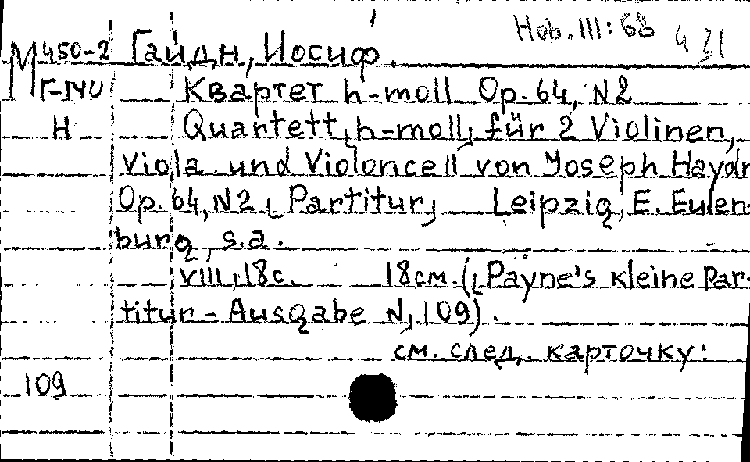 Hob. III: 68 431
М450-2 Гайдн, Иосиф.
Г-14U Квартет h-moll Op. 64, N2
H Quartett, h-moll, für 2 Violinen,
Viola und Violoncell von Joseph Haydn
Op. 64, N2, Partitur, Leipzig, E. Eulen-
burg, s.a.
VIII, 18с. 18см. (Payne's kleine Par-
titur-Ausgabe N, 109).
см. след. карточку:
109